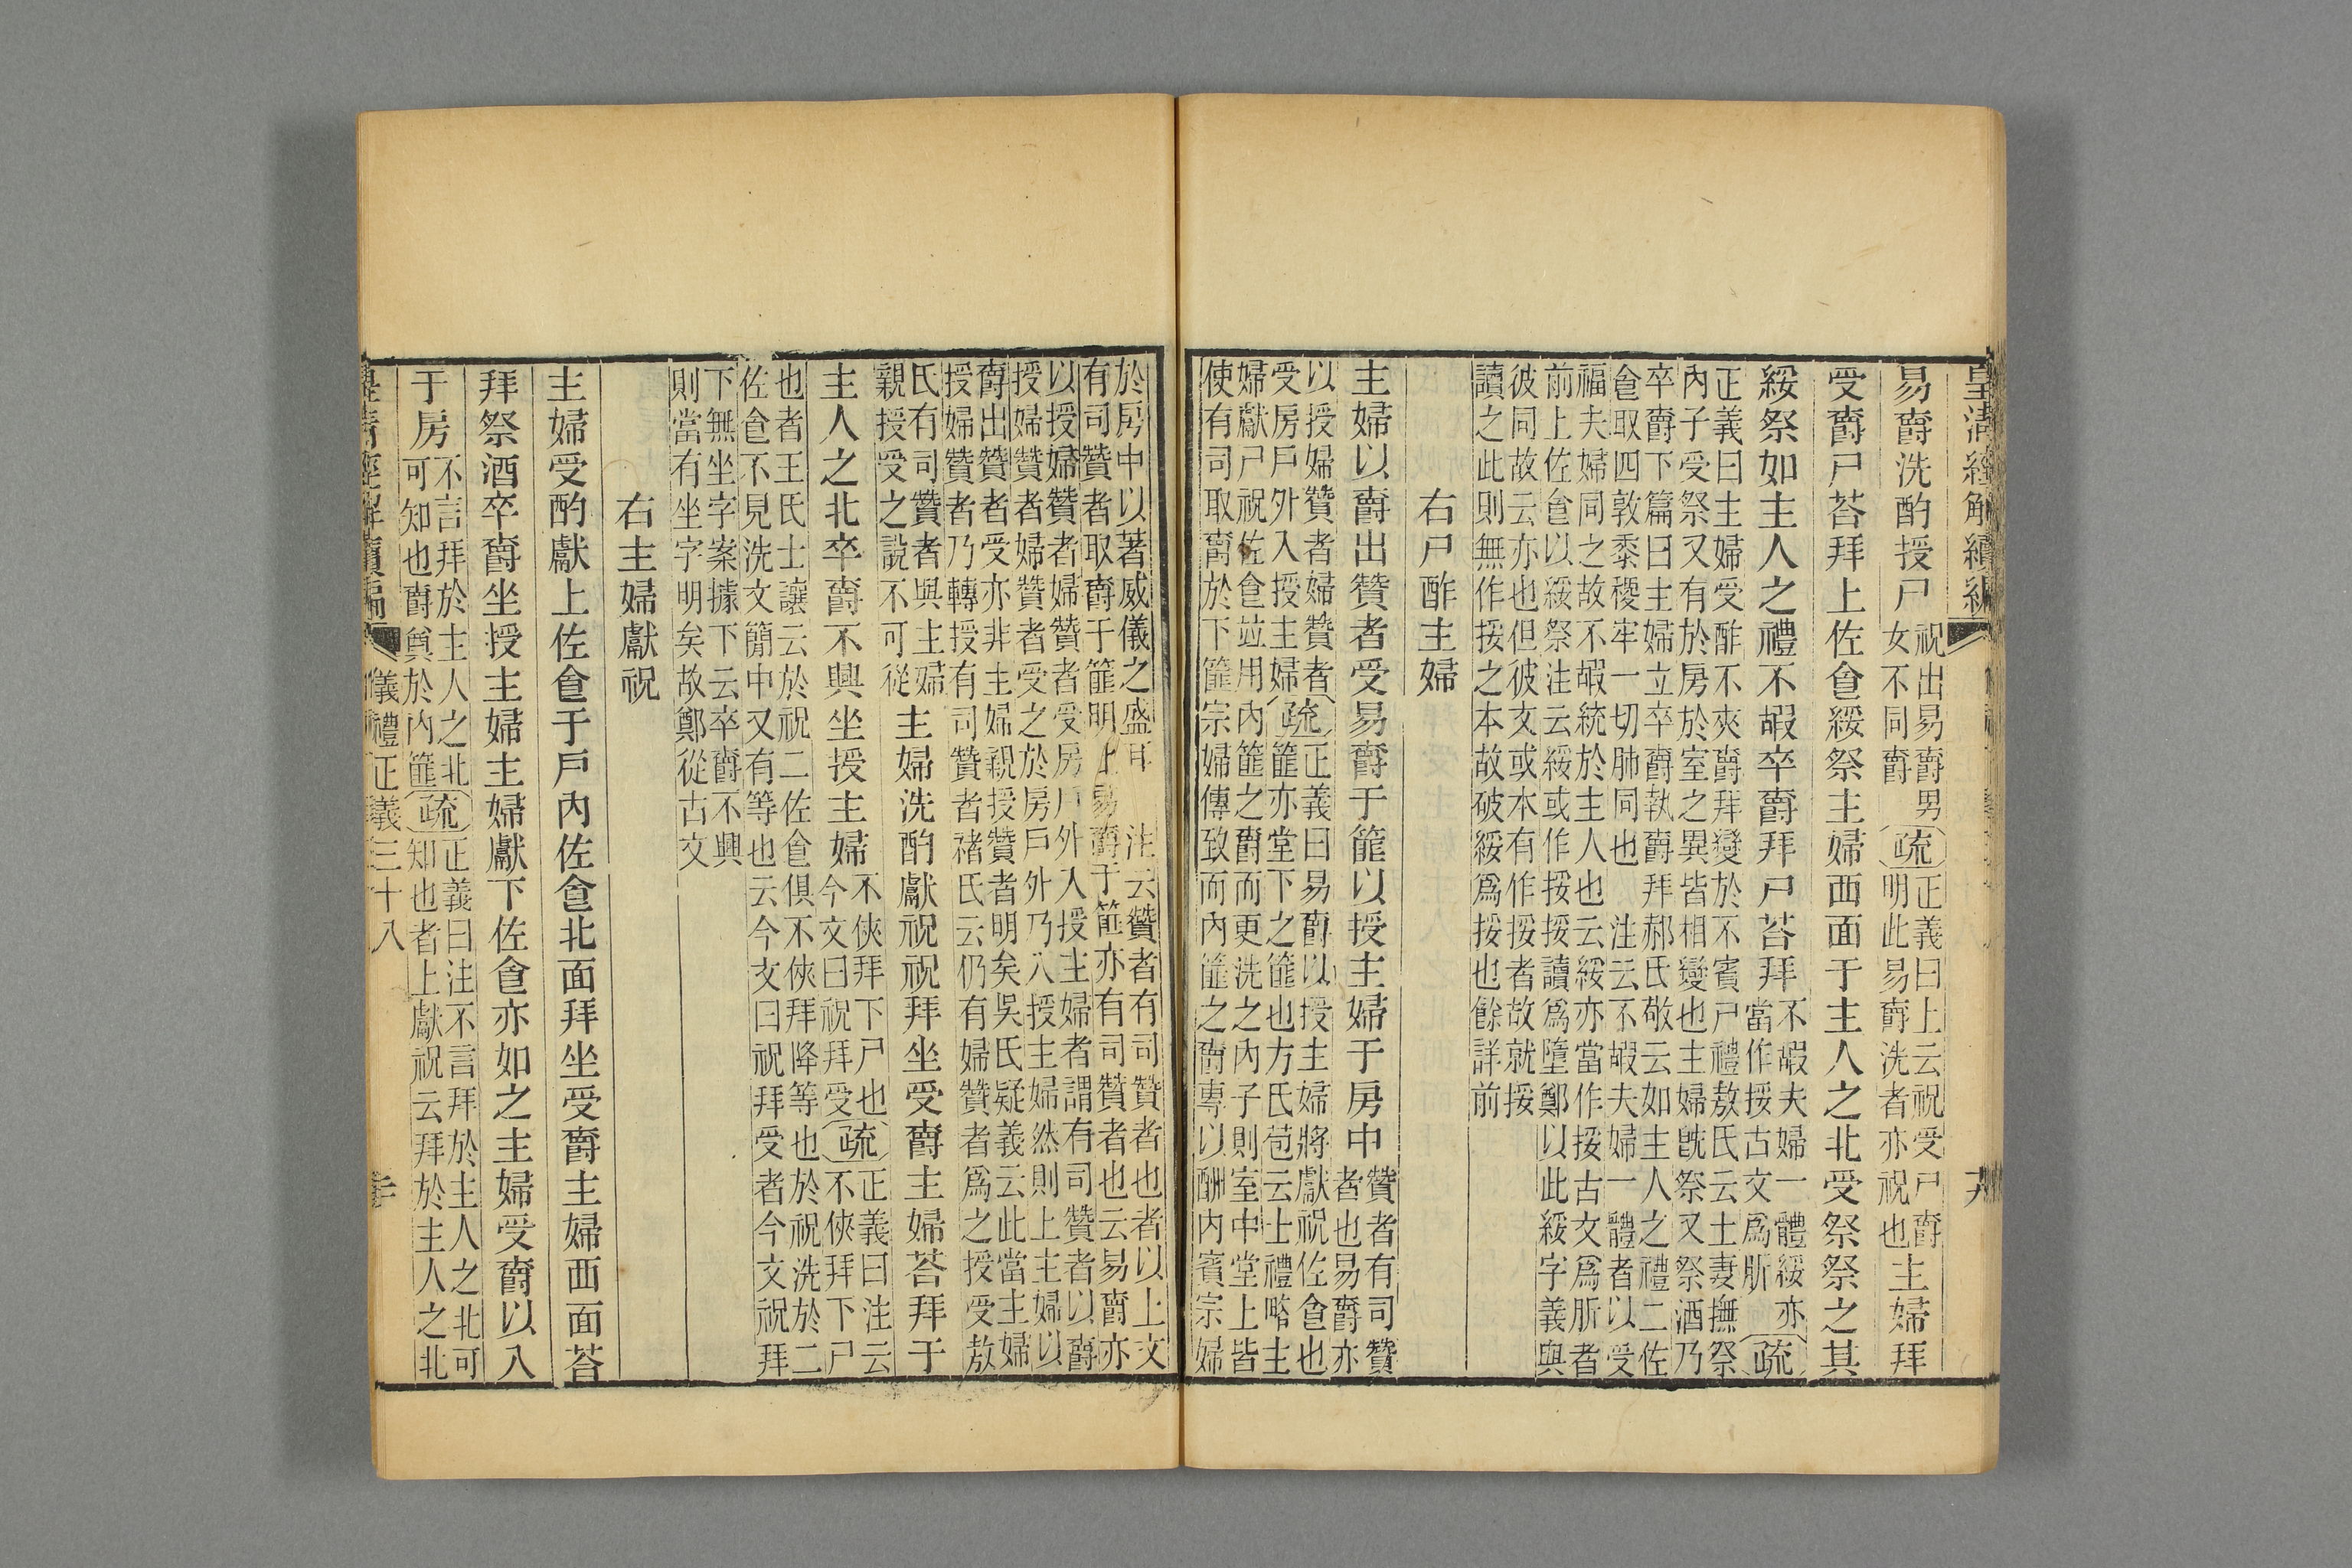 皇清經解續編
易爵洗酌授尸祝出易爵男女不同爵疏正義曰上云祝受尸爵明此易爵洗者亦祝也主婦拜
受爵尸荅拜上佐食綏祭主婦西面于主人之北受祭祭之其
綏祭如主人之禮不嘏卒爵拜尸荅拜不嘏夫婦一體綏亦當作挼古文爲肵疏
正義曰主婦受酢不夾爵拜變於不賓尸禮敖氏云士妻撫祭
內子受祭又有於房於室之異皆相變也主婦旣祭又祭酒乃
卒爵下篇曰主婦立卒爵執爵拜郝氏敬云如主人之禮二佐
食取四敦黍稷牢一切肺同也 注云不嘏夫婦一體者以受
福夫婦同之故不嘏統於主人也云綏亦當作挼古文爲肵者
前上佐食以綏祭注云綏或作挼挼讀爲墮鄭以此綏字義與
彼同故云亦也但彼文或本有作挼者故就挼
讀之此則無作挼之本故破綏爲挼也餘詳前
右尸酢主婦
主婦以爵出贊者受易爵于篚以授主婦于房中贊者有司贊者也易爵亦
以授婦贊者婦贊者疏正義曰易爵以授主婦將獻祝佐食也
受房戶外入授主婦篚亦堂下之篚也方氏苞云士禮略主
婦獻尸祝佐食竝用內篚之爵而更洗之內子則室中堂上皆
使有司取爵於下篚宗婦傳致而內篚之爵專以酬內賓宗婦
於房中以著威儀之盛耳 注云贊者有司贊者也者以上文
有司贊者取爵于篚明此易爵于篚亦有司贊者也云易爵亦
以授婦贊者婦贊者受房戶外入授主婦者謂有司贊者以爵
授婦贊者婦贊者受之於房戶外乃入授主婦然則上主婦以
爵出贊者受亦非主婦親授贊者明矣吳氏疑義云此當主婦
授婦贊者乃轉授有司贊者褚氏云仍有婦贊者爲之授受敖
氏有司贊者與主婦
親授受之說不可從主婦洗酌獻祝祝拜坐受爵主婦荅拜于
主人之北卒爵不興坐授主婦不俠拜下尸也今文曰祝拜受疏正義曰注云不俠拜下尸
也者王氏士讓云於祝二佐食俱不俠拜降等也於祝洗於二
佐食不見洗文簡中又有等也云今文曰祝拜受者今文祝拜
下無坐字案據下云卒爵不興
則當有坐字明矣故鄭從古文
右主婦獻祝
主婦受酌獻上佐食于戶內佐食北面拜坐受爵主婦西面荅
拜祭酒卒爵坐授主婦主婦獻下佐食亦如之主婦受爵以入
于房不言拜於主人之北可知也爵奠於內篚疏正義曰注不言拜於主人之北可知也者上獻祝云拜於主人之北
皇清經解續編 儀禮正義三十八